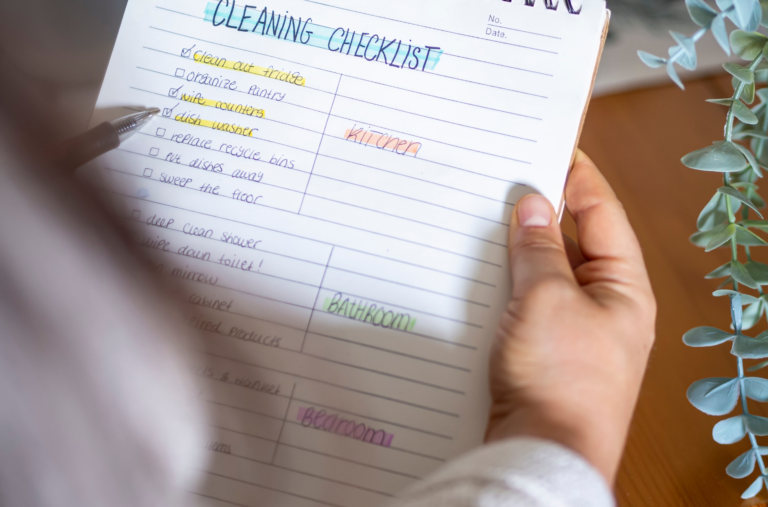 No.
Date.
CLEANING CHECKLIST
clean out fridge
organize pantry
wipe counters
dish washer
replace recycle bins
put dishes away
sweep the floor
KITCHEN
deep clean shower
wipe down toilet!
mirrow
cabinet
products
BATHROOM
Bedroom